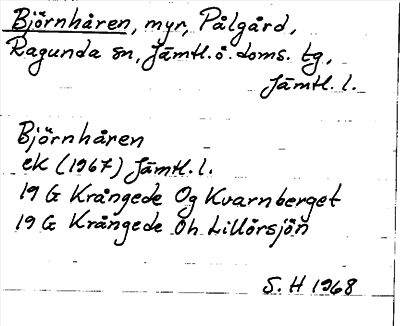 Björnhåren, myr, Pålgård,
Ragunda sn, Jämtl. ö. doms. tg,
Jämtl. l.
Björnhåren
ek (1967) Jämtl. l.
19 G Krångede Og Kvarnberget
19 G Krångede Oh Lillörsjön
S. H 1968